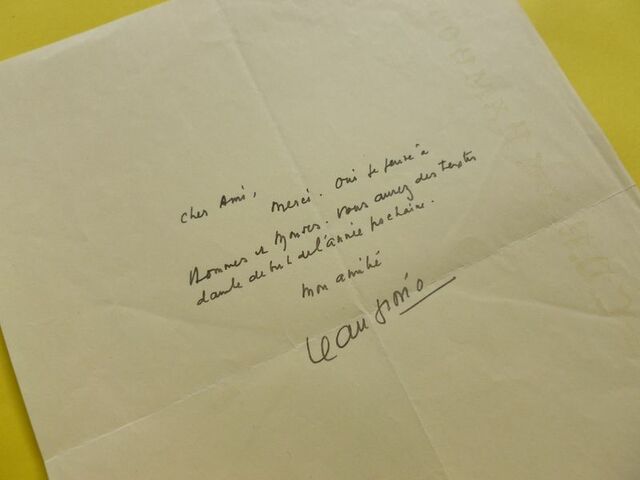 Cher Ami,
Merci. Oui je pense à
Hommes et Mondes. Vous aurez des textes
dans le début de l'année prochaine.
Mon amitié
Jean Giono